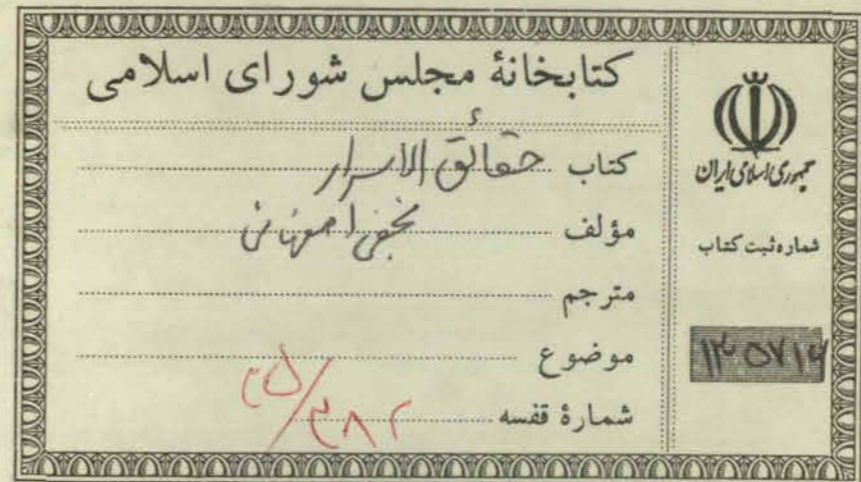 کتابخانهٔ مجلس شورای اسلامی
کتاب حقائق الاسرار
مؤلف نجفی اصفهانی
مترجم
موضوع
شمارهٔ قفسه
جمهوری اسلامی ایران
شماره ثبت کتاب